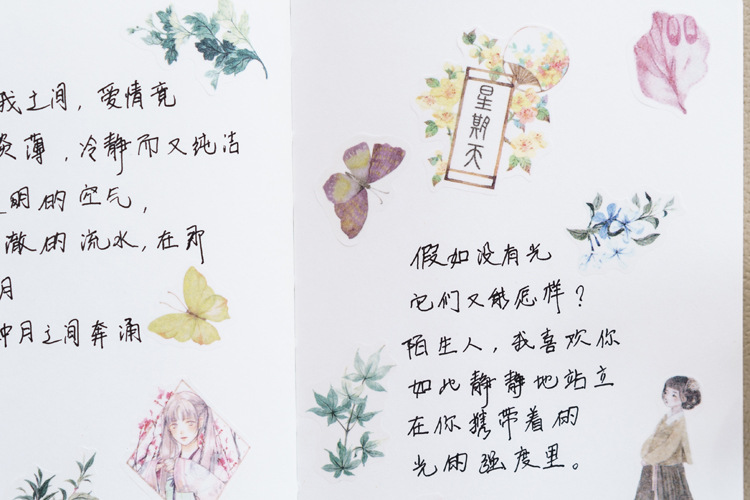 我之间，爱情竟
薄，冷静而又纯洁
明的空气，
澈的流水，在那
月
月之间奔涌
星期天
假如没有光
它们又能怎样？
陌生人，我喜欢你
如此静静地站立
在你携带着的
光的强度里。